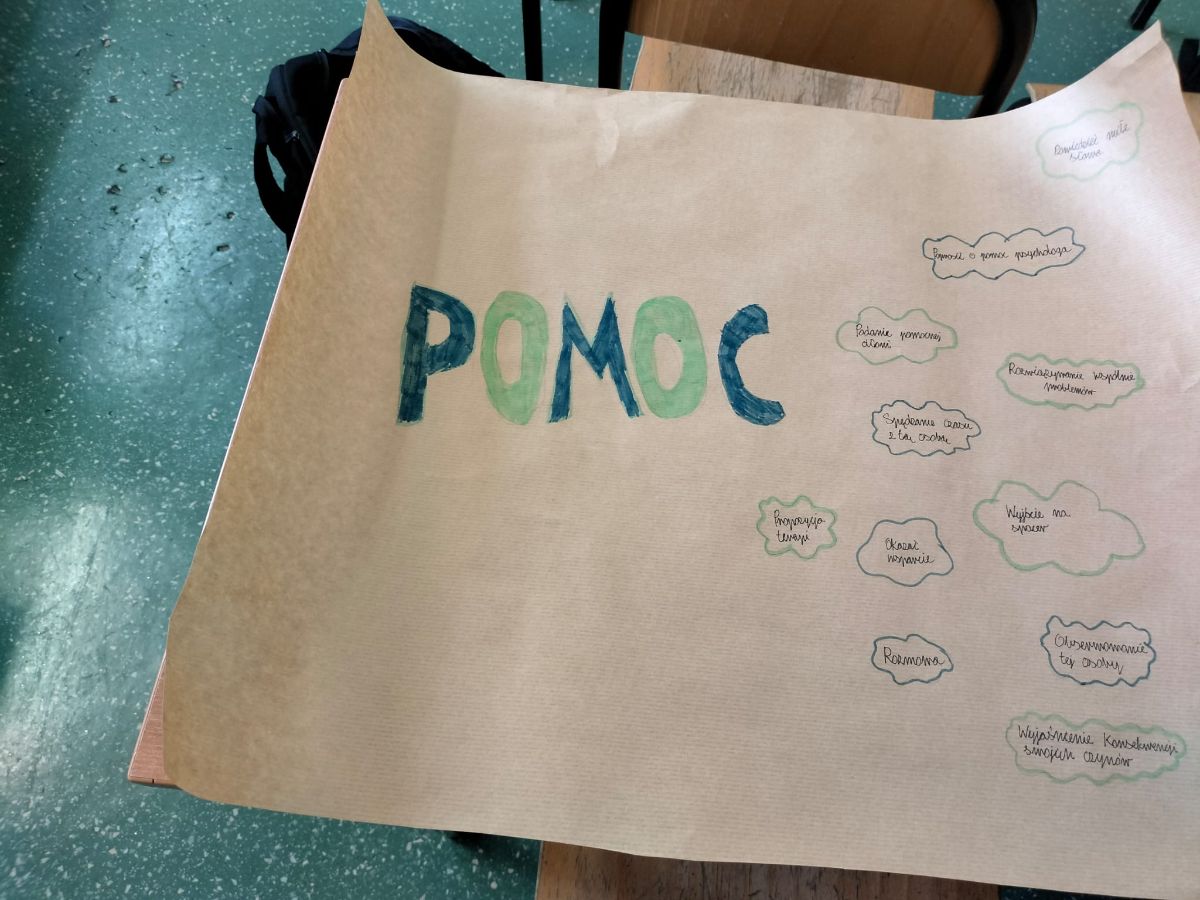 POMOC
Powiedzieć miłe
słowa
Poprosić o pomoc psychologa
Podanie pomocnej
dłoni
Rozwiązywanie wspólnie
problemów
Spędzanie czasu
z tą osobą
Propozycja
terapi
Okazać
wsparcie
Wyjście na
spacer
Rozmowa
Obserwowanie
tej osoby
Wyjaśnienie konsekwencji
swojich czynów